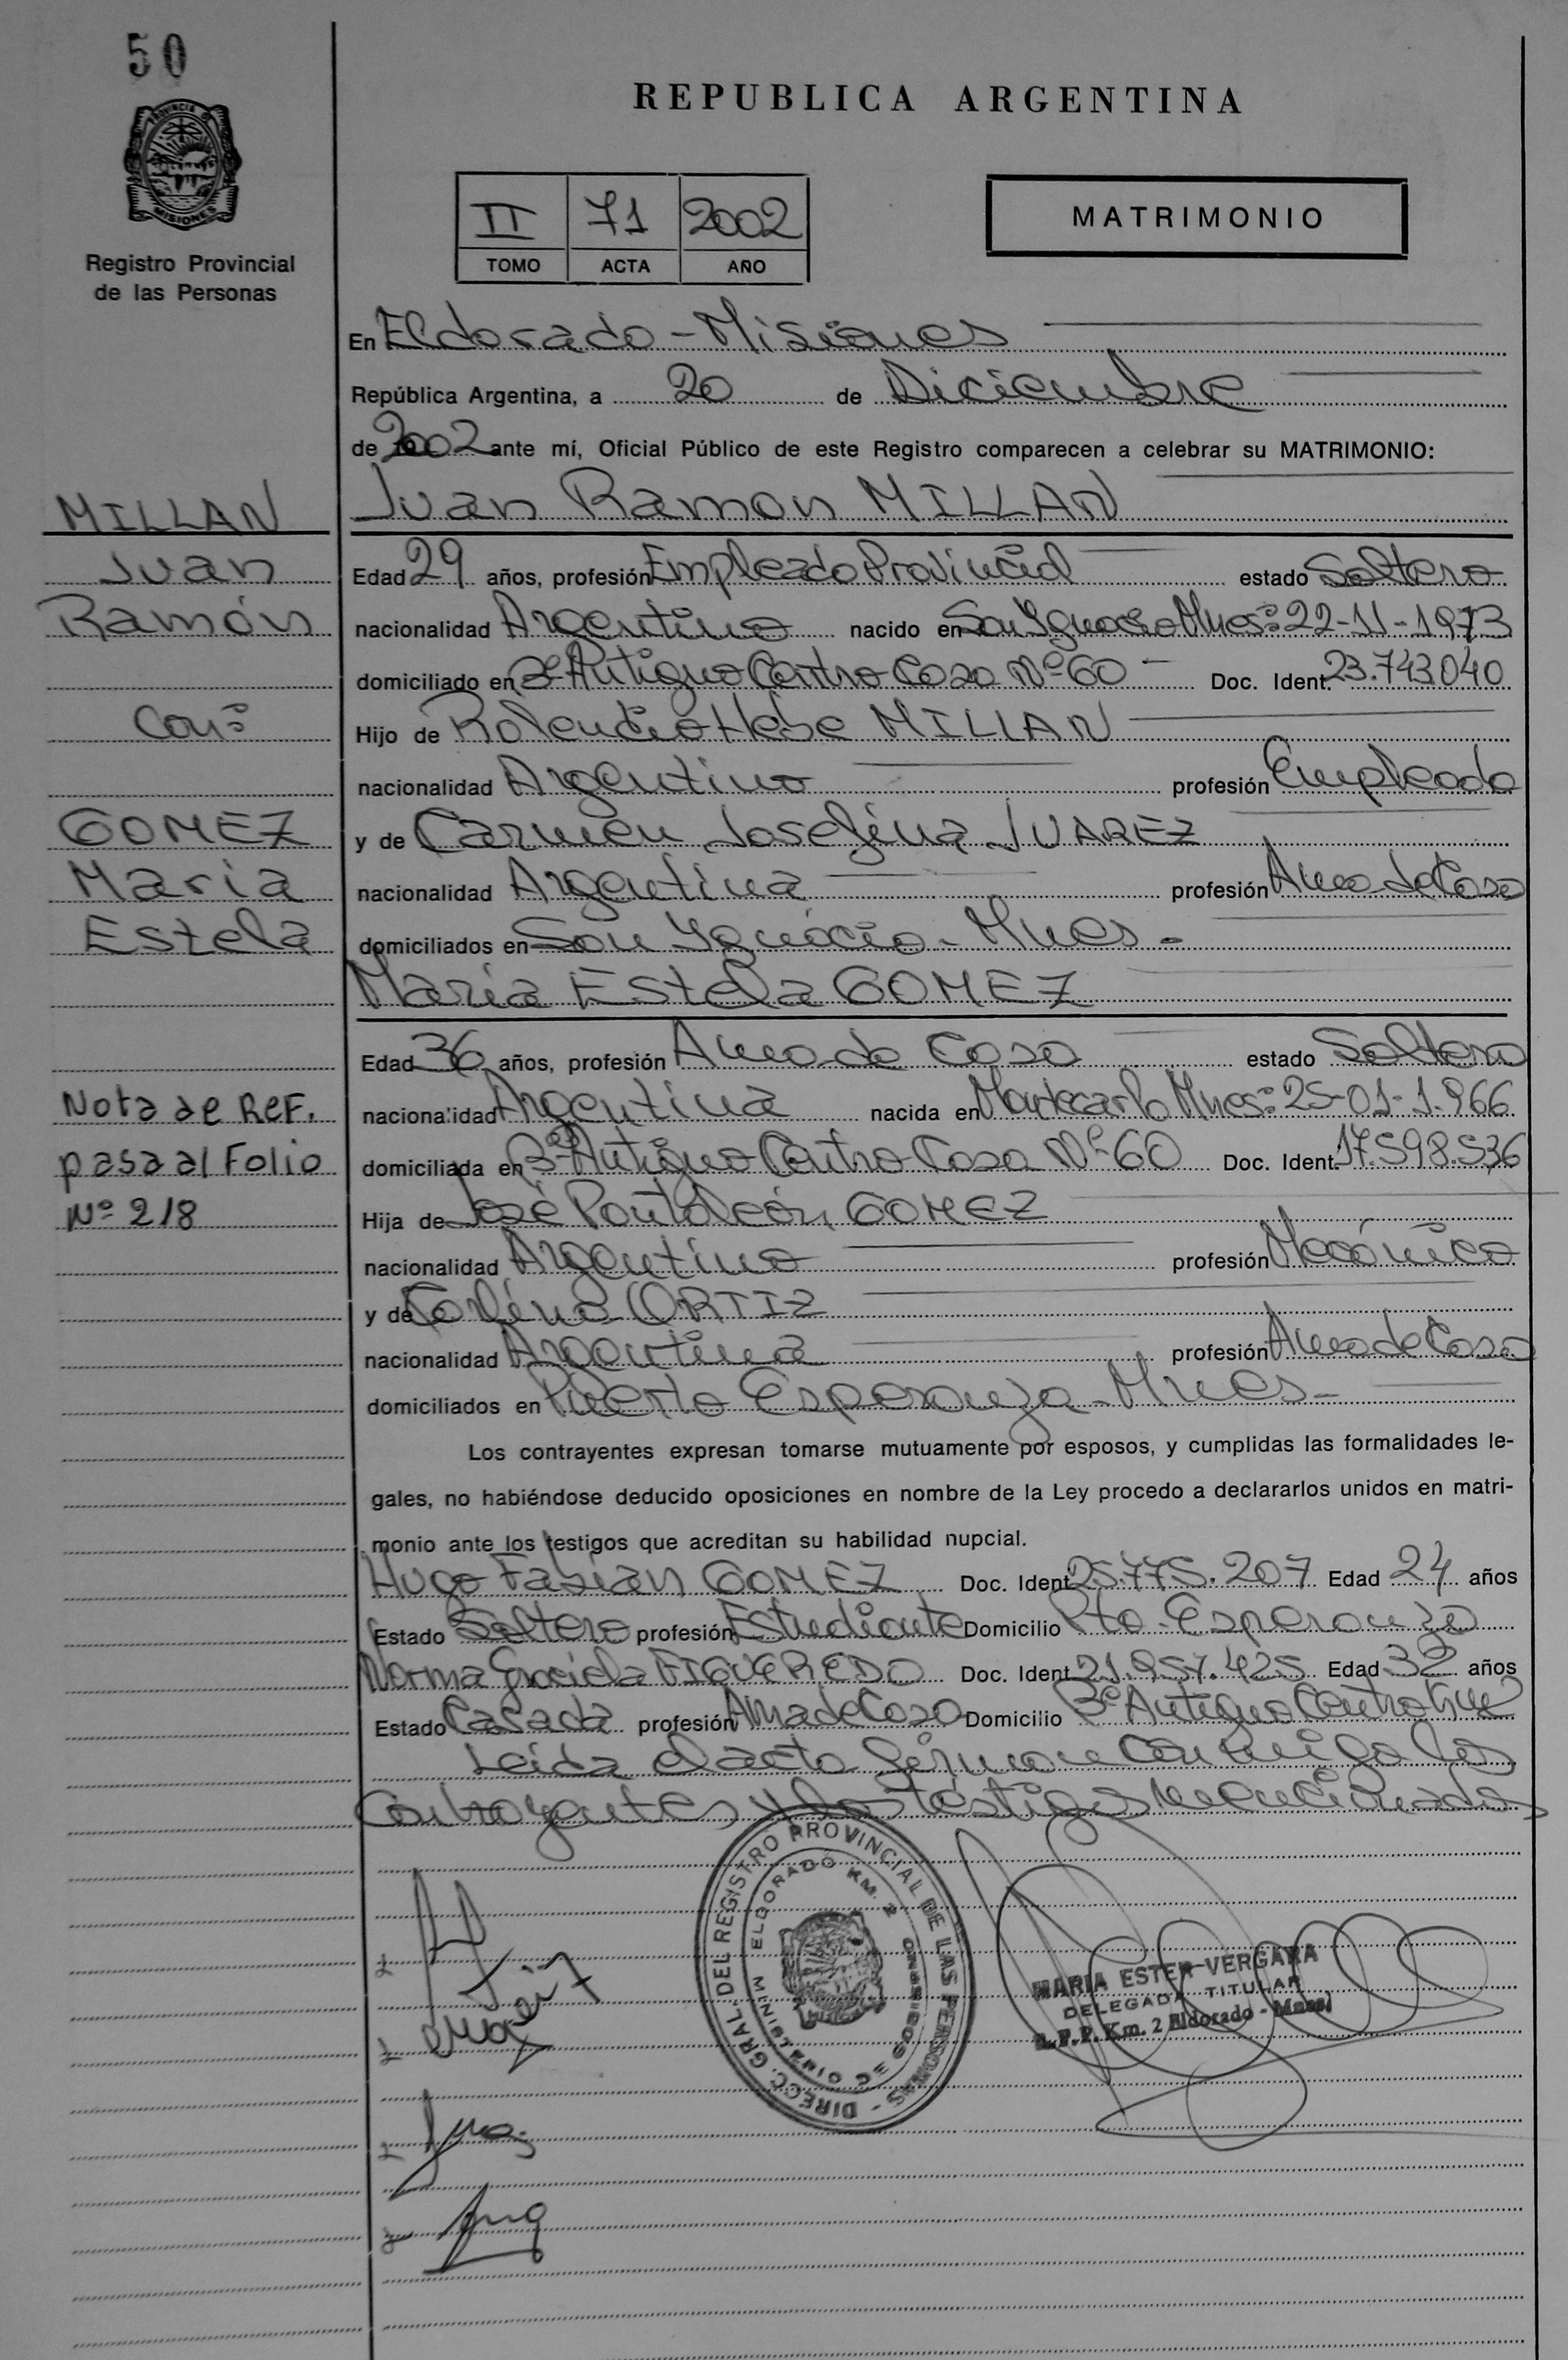 50
REPUBLICA ARGENTINA
PROVINCIA DE
MISIONES
Registro Provincial
de las Personas
II 71 2002
TOMO ACTA AÑO
MATRIMONIO
En Eldorado - Misiones
República Argentina, a 20 de Diciembre
de 2002 ante mí, Oficial Público de este Registro comparecen a celebrar su MATRIMONIO:
MILLAN
Juan
Ramón
Con=
GOMEZ
Maria
Estela
Nota de REF.
pasa al Folio
Nº 218
Juan Ramon MILLAN
Edad 29 años, profesión Empleado Provincial estado Soltero
nacionalidad Argentino nacido en San Ygnacio Mnes= 22-11-1973
domiciliado en Bº Antiguo Centro Casa Nº 60 - Doc. Ident. 23.743.040
Hijo de Hebe MILLAN
nacionalidad Argentino profesión Empleado
y de Carmen Josefina JUAREZ
nacionalidad Argentina profesión Ama de Casa
domiciliados en San Ygnacio - Mnes -
Maria Estela GOMEZ
Edad 36 años, profesión Ama de Casa estado Soltera
nacionalidad Argentina nacida en Montecarlo Mnes= 25-01-1.966
domiciliada en Bº Antiguo Centro Casa Nº 60 Doc. Ident. 17.598.536
Hija de José Pantaleón GOMEZ
nacionalidad Argentino profesión Mecánico
y de ORTIZ
nacionalidad Argentina profesión Ama de Casa
domiciliados en Puerto Esperanza - Mnes -
Los contrayentes expresan tomarse mutuamente por esposos, y cumplidas las formalidades le-
gales, no habiéndose deducido oposiciones en nombre de la Ley procedo a declararlos unidos en matri-
monio ante los testigos que acreditan su habilidad nupcial.
Hugo Fabian GOMEZ Doc. Ident. 25.775.207 Edad 24 años
Estado Soltero profesión Estudiante Domicilio Pto. Esperanza
Norma Graciela FIGUEREDO Doc. Ident. 21.957.425 Edad 32 años
Estado Casada profesión Ama de Casa Domicilio Bº Antiguo Centro
Leida el acta firman conmigo los
Contrayentes y los testigos mencionados
DIRECC. GRAL. DEL REGISTRO PROVINCIAL DE LAS PERSONAS -
MINISTERIO DE GOBIERNO
ELDORADO KM. 2
MARIA ESTER VERGARA
DELEGADA TITULAR
R.P.P. Km. 2 Eldorado - Mnes)